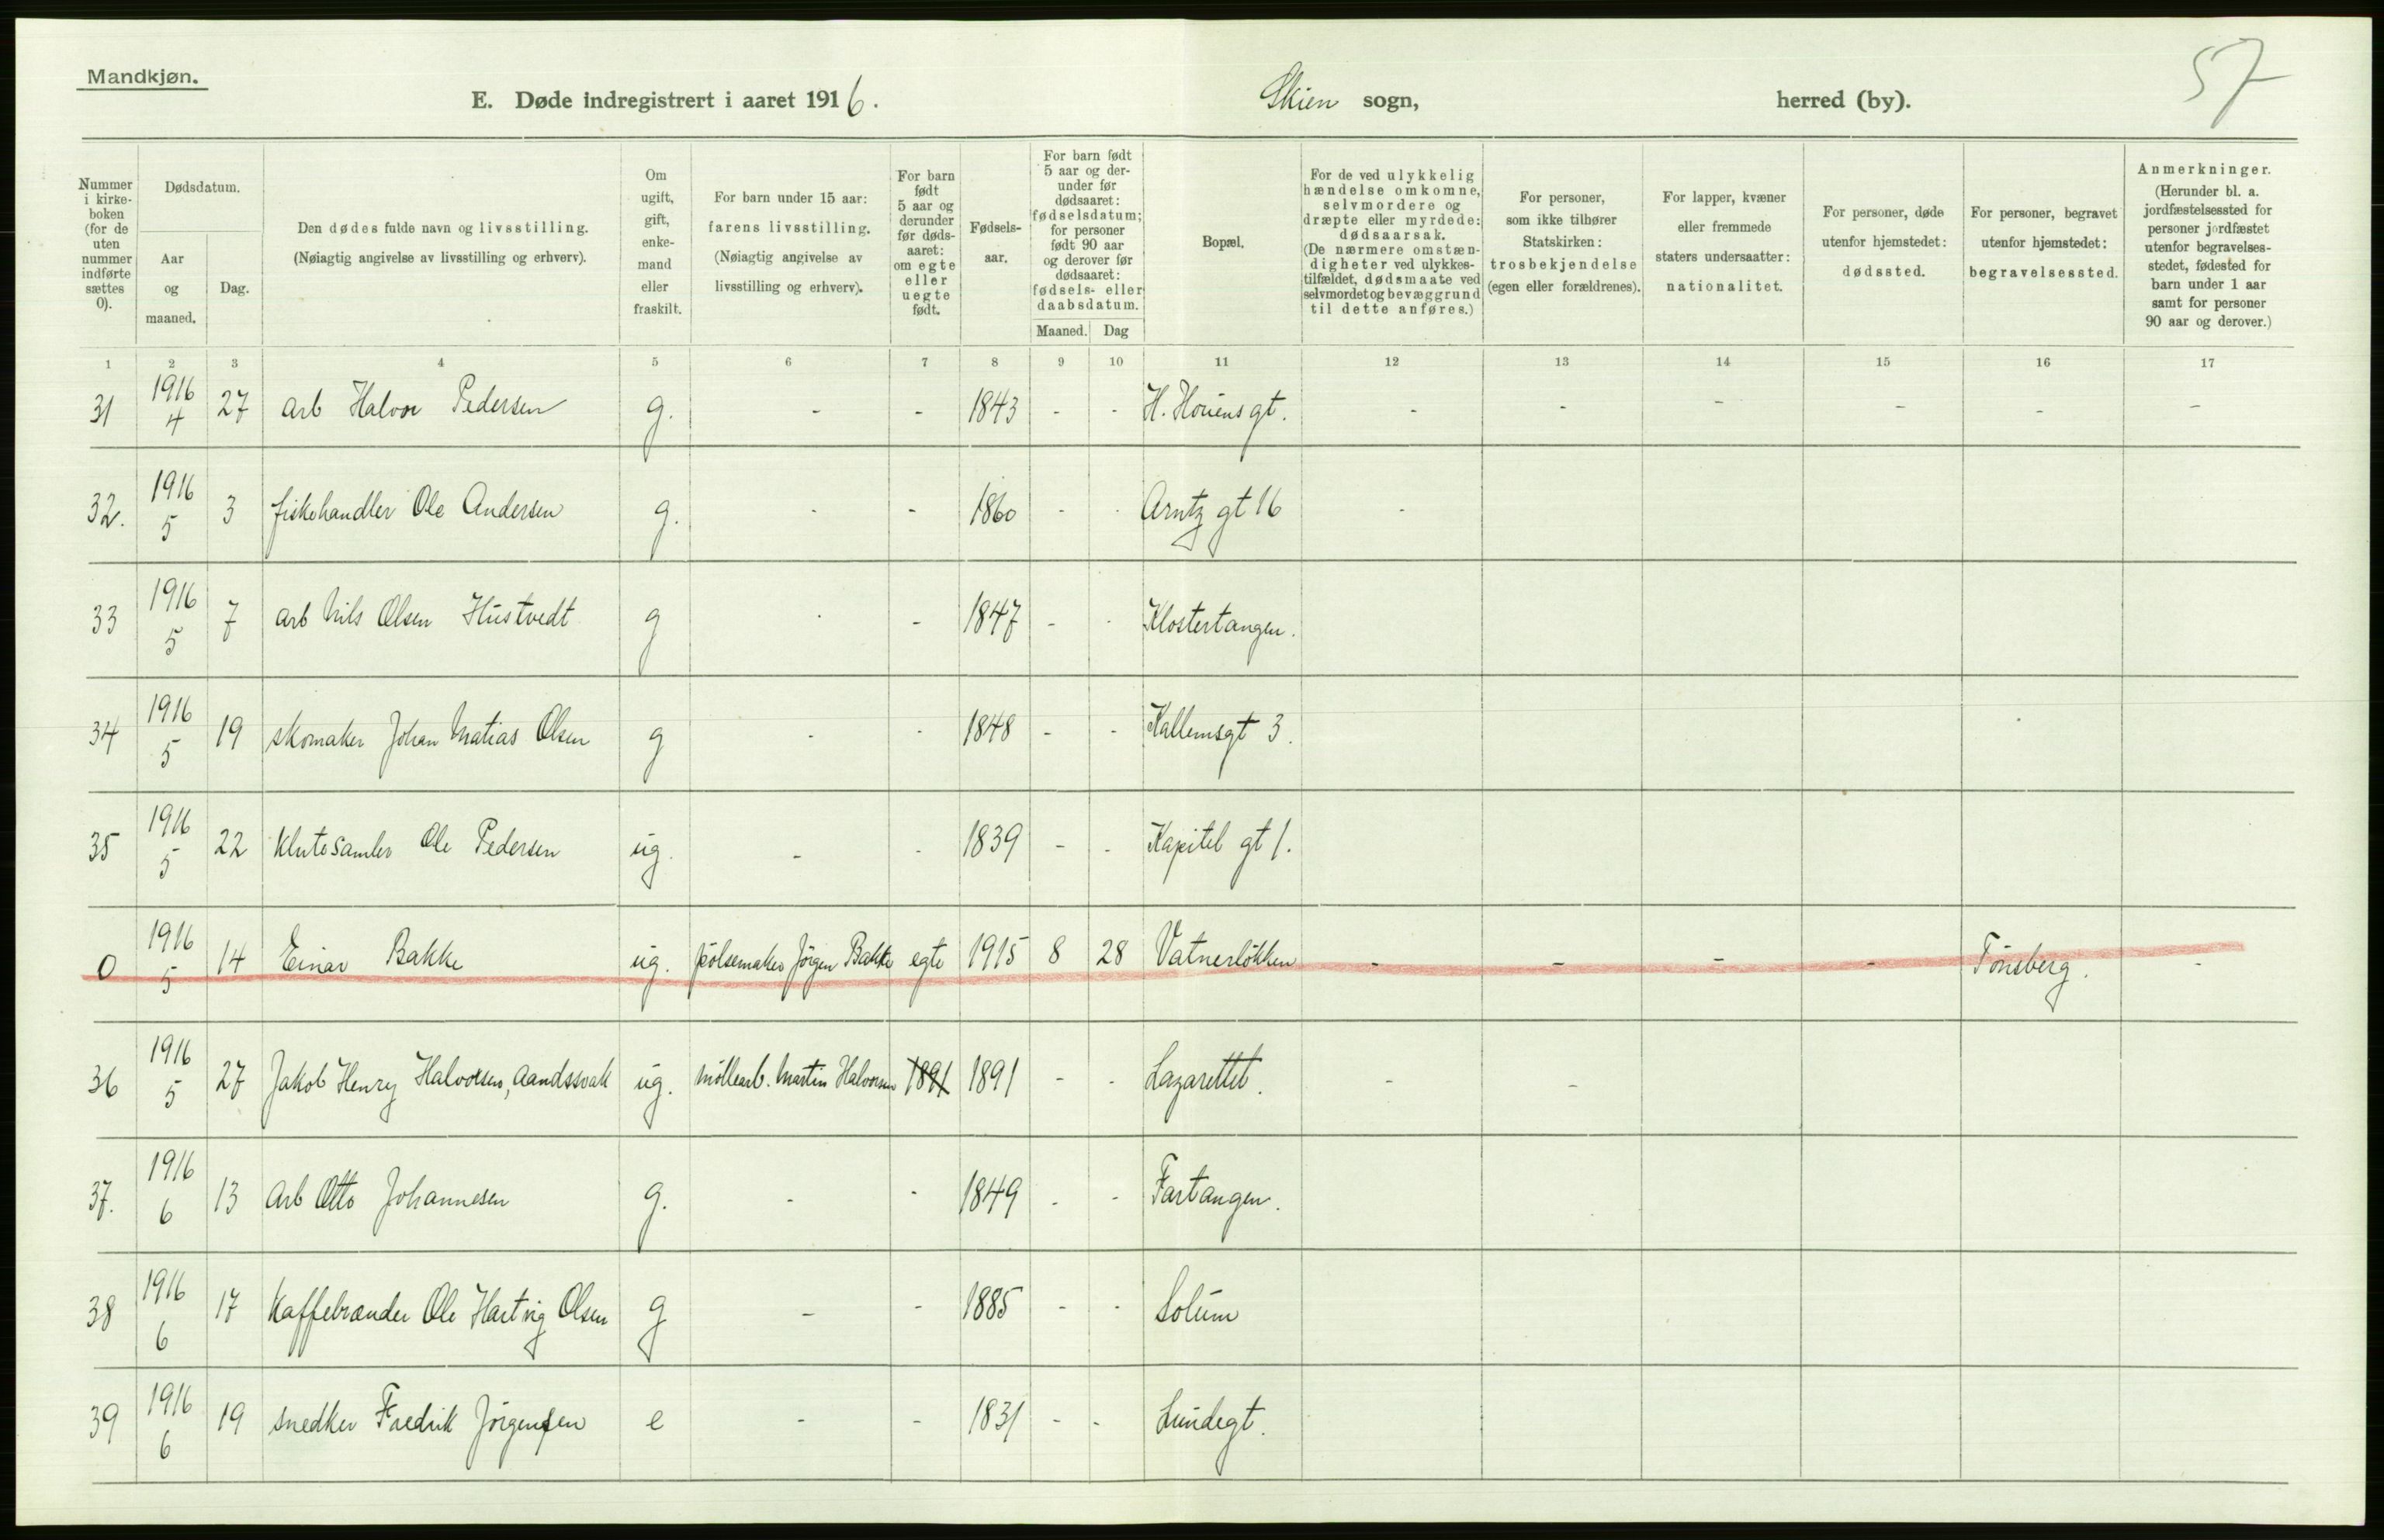 57
Mandkjøn.
E. Døde indregistrert i aaret 1916. Skien sogn, herred (by).
Nummer i kirke-boken (for de uten nummer indførte sættes 0).
Dødsdatum.
Aar og maaned.
Dag.
Den dødes fulde navn og livsstilling.
(Nøiagtig angivelse av livsstilling og erhverv).
Om ugift, gift, enke-mand eller fraskilt.
For barn under 15 aar: farens livsstilling.
(Nøiagtig angivelse av livsstilling og erhverv).
For barn født 5 aar og derunder før døds-aaret: om egte eller uegte født.
Fødsels-aar.
For barn født 5 aar og der-under før dødsaaret: fødselsdatum; for personer født 90 aar og derover før dødsaaret: fødsels- eller daabsdatum.
Maaned. Dag
Bopæl.
For de ved ulykkelig hændelse omkomne, selvmordere og dræpte eller myrdede: dødsaarsak.
(De nærmere omstæn-digheter ved ulykkes-tilfældet, dødsmaate ved selvmordet og bevæggrund til dette anføres.)
For personer, som ikke tilhører Statskirken: trosbekjendelse (egen eller forældrenes).
For lapper, kvæner eller fremmede staters undersaatter: nationalitet.
For personer, døde utenfor hjemstedet: dødssted.
For personer, begravet utenfor hjemstedet: begravelsessted.
Anmerkninger.
(Herunder bl. a. jordfæstelsessted for personer jordfæstet utenfor begravelses-stedet, fødested for barn under 1 aar samt for personer 90 aar og derover.)
1 2 3 4 5 6 7 8 9 10 11 12 13 14 15 16 17
31 1916 4 27 arb Halvor Pedersen g. - - 1843 - - H. Houens gt. - - - - - -
32. 1916 5 3 fiskehandler Ole Andersen g. - - 1860 - - Arntz gt 16 -
33 1916 5 7 arb Nils Olsen Hustvedt g - - 1847 - - Klostertangen.
34 1916 5 19 skomaker Johan Matias Olsen g - - 1848 - - Kallemsgt 3.
35 1916 5 22 klutesamler Ole Pedersen ug. - - 1839 - - Kapitel gt 1.
0 1916 5 14 Einar Bakke ug. pölsemaker Jörgen Bakke egte 1915 8 28 Vatnerlökken - - - - Tönsberg. -
36 1916 5 27 Jakob Henry Halvorsen, aandssvak ug. möllearb. Martin Halvorsen 1891 1891 - - Lazarettet. - -
37. 1916 6 13 Arb Otto Johannesen g. - - 1849 - - Fartangen.
38 1916 6 17 Kaffebrander Ole Hartvig Olsen g - - 1885 - - Solum
39 1916 6 19 snedker Fredrik Jörgensen e - - 1831 - - Lundegt.